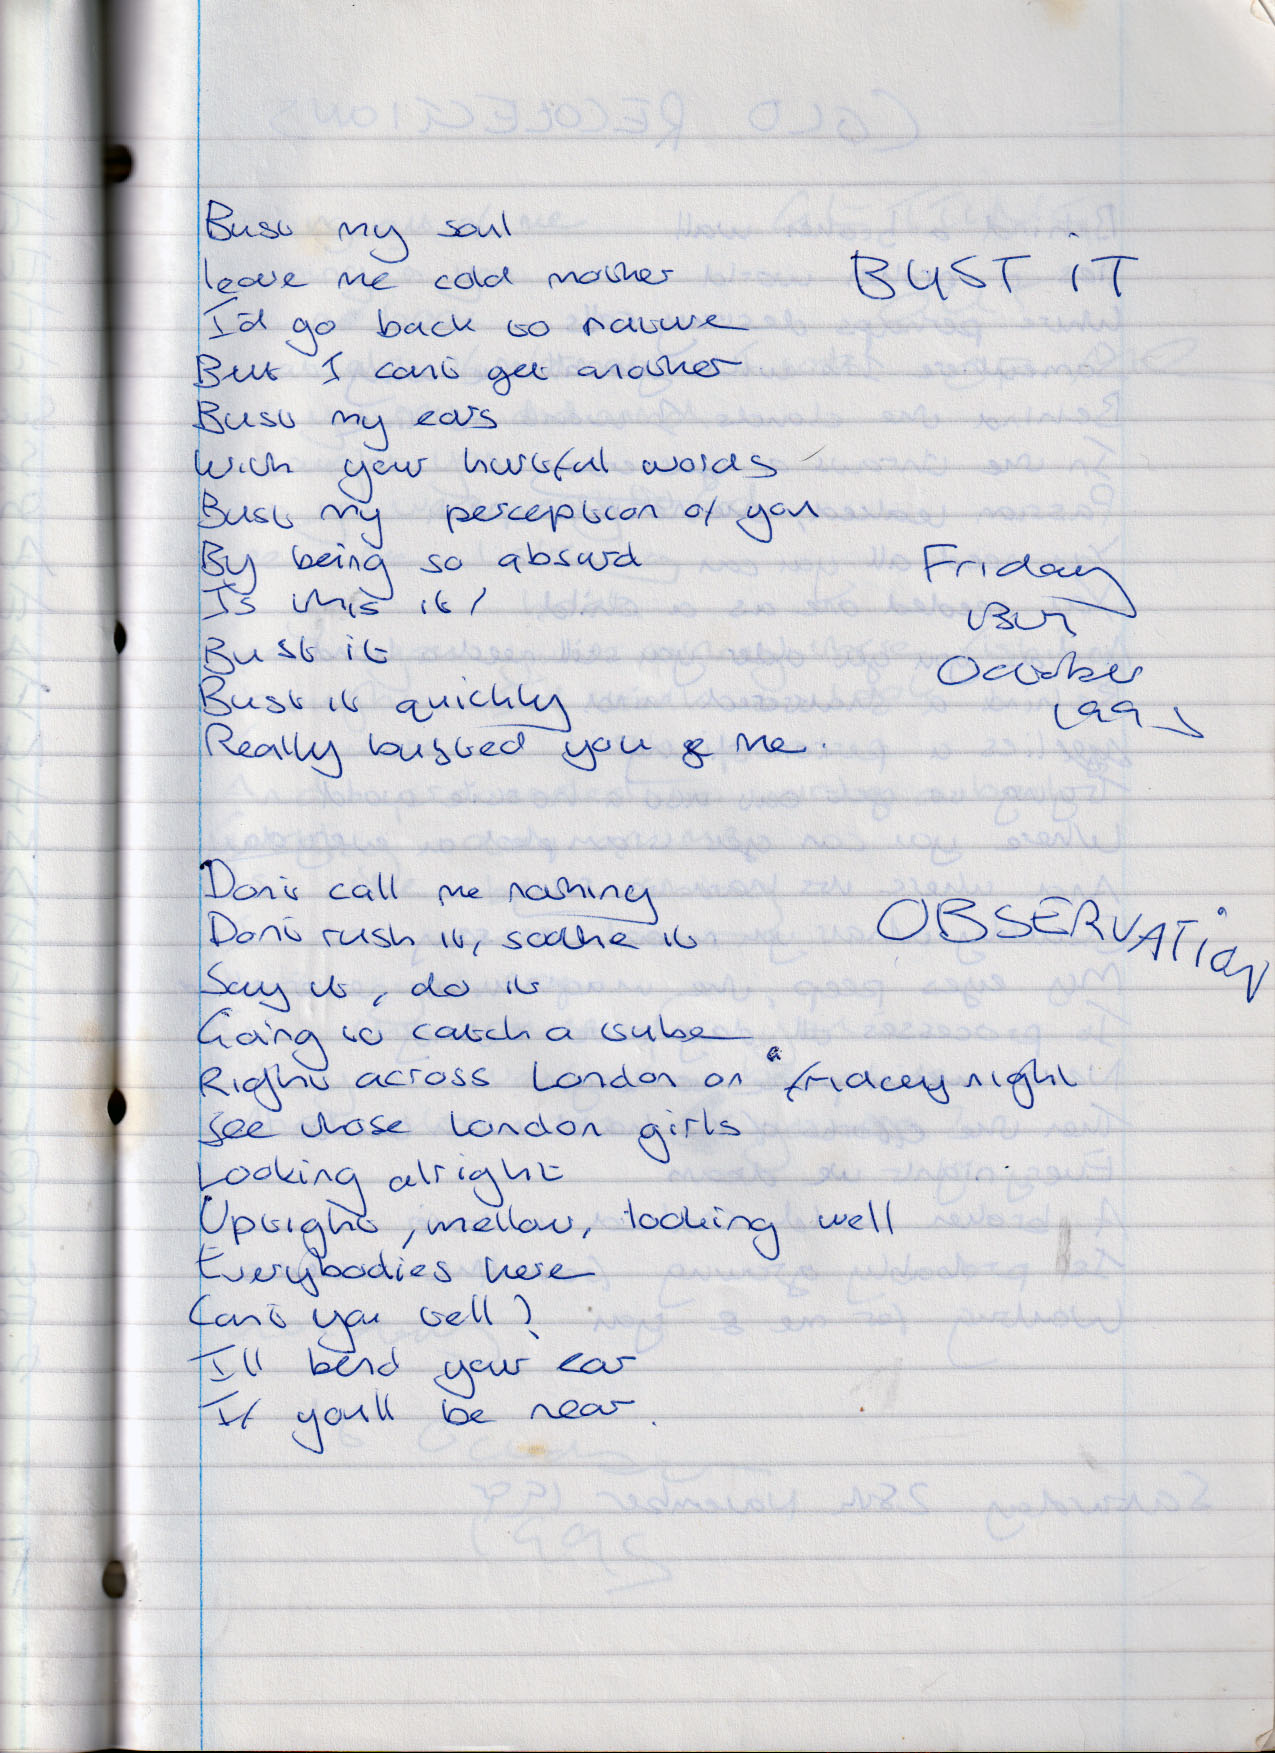 BUST iT
Bust my soul
leave me cold mother
I'd go back to nature
But I can't get another
Bust my ears
With your hurtful words
Bust my perception of you
By being so absurd
Is this it!
Bust it
Bust it quickly
Really busted you & me.
Friday
October
OBSERVATiON
Don't call me nothing
Don't rush it, soothe it
Say it, do it
Going to catch a tube
Right across London on a friday night
See those London girls
Looking alright
Upright, mellow, looking well
Everybodies here
Can't you tell?
I'll bend your ear
If you'll be near.